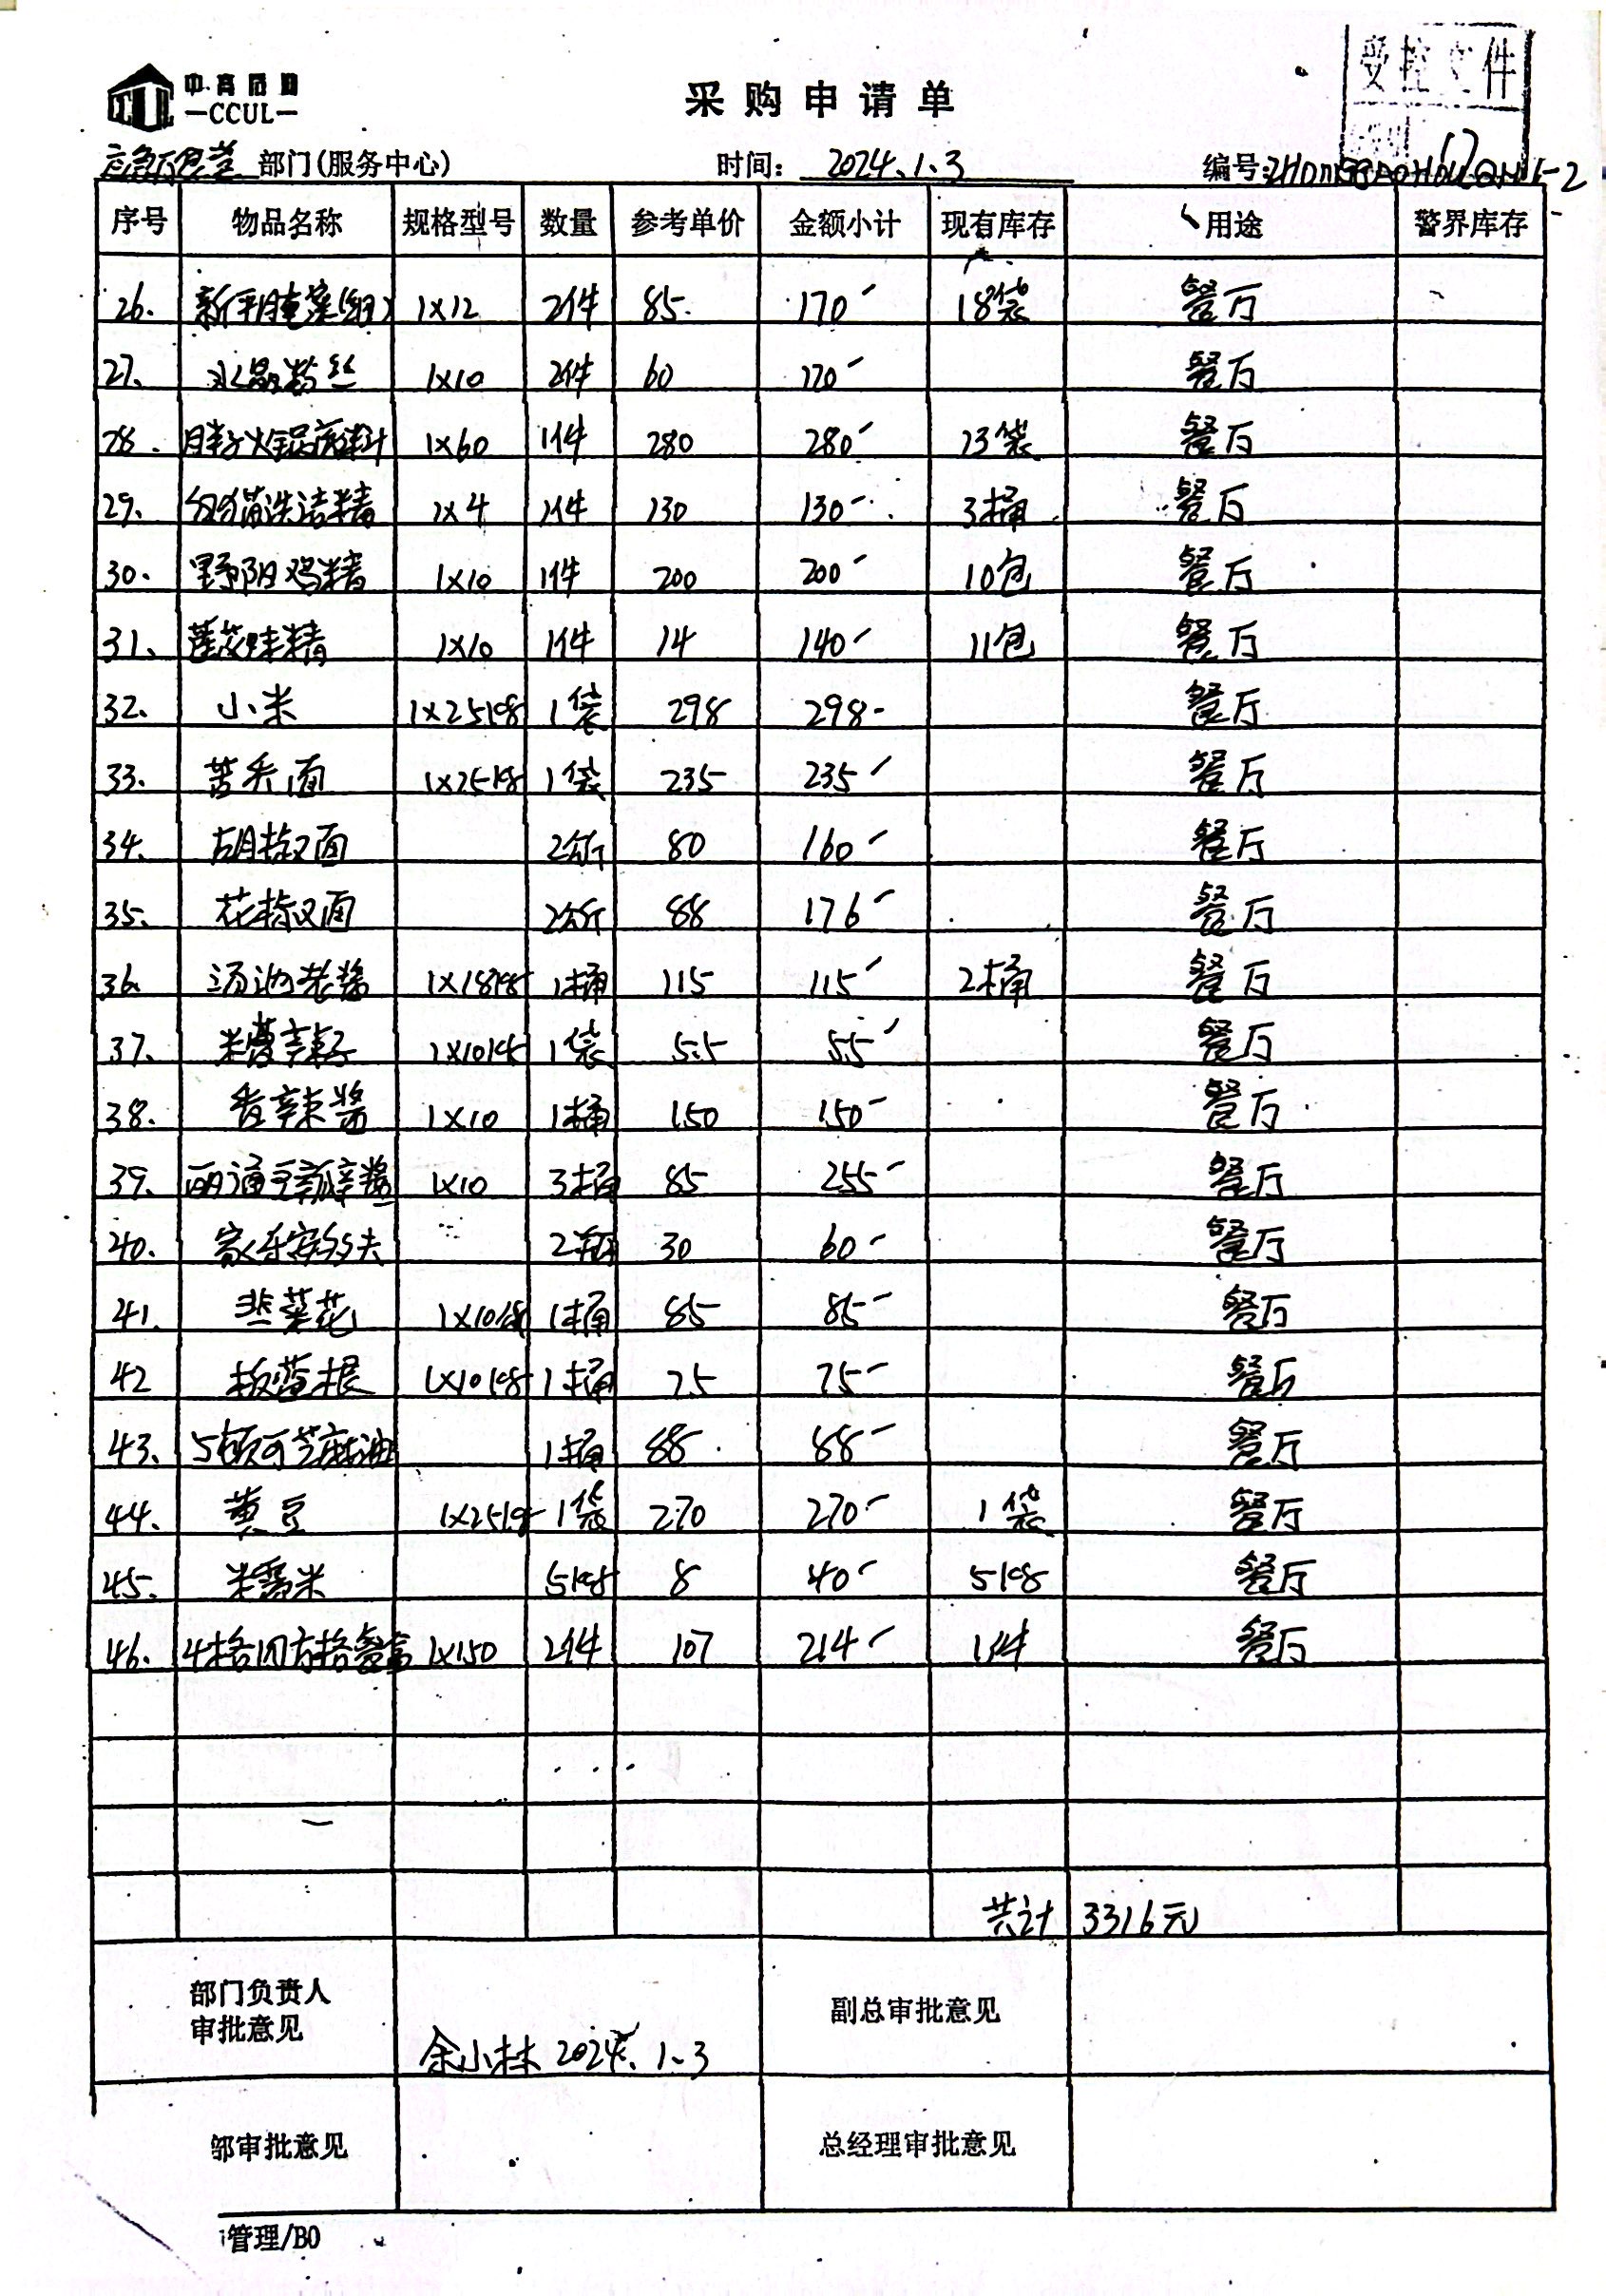 中高后勤
—CCUL—
采购申请单
受控文件
应急厅食堂 部门(服务中心) 时间: 2024.1.3 编号:
序号 物品名称 规格型号 数量 参考单价 金额小计 现有库存 用途 警界库存
26. 新平腌菜(细) 1×12 2件 85 170 18袋 餐厅
27. 水晶粉丝 1×10 2件 60 120 餐厅
28. 胖子火锅底料 1×60 1件 280 280 23袋 餐厅
29. 白猫洗洁精 1×4 1件 130 130 3桶 餐厅
30. 野阴鸡精 1×10 1件 200 200 10包 餐厅
31. 莲花味精 1×10 1件 14 140 11包 餐厅
32. 小米 1×25kg 1袋 298 298 餐厅
33. 苦荞面 1×25kg 1袋 235 235 餐厅
34. 胡椒面 2公斤 80 160 餐厅
35. 花椒面 2公斤 88 176 餐厅
36. 汤池老酱 1×18kg 1桶 115 115 2桶 餐厅
37. 糟辣子 1×10kg 1袋 55 55 餐厅
38. 香辣酱 1×10 1桶 150 150 餐厅
39. 丽通豆瓣酱 1×10 3桶 85 255 餐厅
40. 家乐安多夫 2瓶 30 60 餐厅
41. 韭菜花 1×10kg 1桶 85 85 餐厅
42 板蓝根 1×10kg 1桶 75 75 餐厅
43. 顿可芝麻油 1桶 88 88 餐厅
44. 黄豆 1×25kg 1袋 270 270 1袋 餐厅
45. 糯米 5kg 8 40 5kg 餐厅
46. 4格四方格餐盒 1×150 2件 107 214 1件 餐厅
共计 3316元
部门负责人
审批意见
余小林 2024.1.3
副总审批意见
部审批意见
总经理审批意见
管理/B0